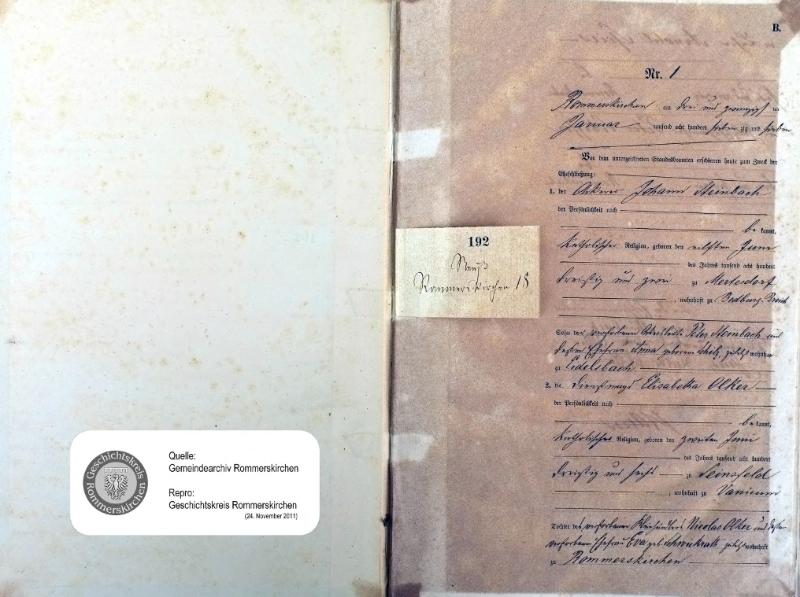 Geschichtskreis
Rommerskirchen
Quelle:
Gemeindearchiv Rommerskirchen
Repro:
Geschichtskreis Rommerskirchen
(24. November 2011)
192
Neuß
Rommerskirchen 18
B.
Nr. 1
Rommerskirchen am drei und zwanzigsten
Januar tausend acht hundert sieben zig und sieben
Vor dem unterzeichneten Standesbeamten erschienen heute zum Zweck der
Eheschließung:
1. der Ackerer Johann Steinbach
der Persönlichkeit nach
bekannt,
katholischer Religion, geboren den Juni
des Jahres tausend acht hundert
dreißig und zwei zu
, wohnhaft zu Bedburg
Sohn des verstorbenen Peter Steinbach und
dessen Ehefrau Anna geborene zuletzt wohnhaft
zu
2. die Dienstmagd Elisabetha Olker
der Persönlichkeit nach
bekannt,
katholischer Religion, geboren den zweiten Juni
des Jahres tausend acht hundert
dreißig und sechs zu
, wohnhaft zu Vanicum
Tochter des verstorbenen Nicolas Olker und dessen
verstorbenen Ehefrau Eva geb. zuletzt wohnhaft
zu Rommerskirchen